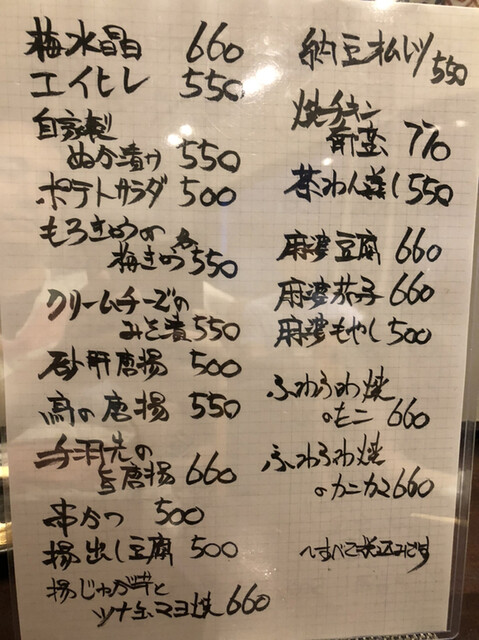 梅水晶 660
エイヒレ 550
自家製
ぬか漬け 550
ポテトサラダ 500
もろきゅう or
梅きゅう 550
クリームチーズの
みそ漬 550
砂肝唐揚 500
鳥の唐揚 550
手羽先の
旨唐揚 660
串かつ 500
揚出し豆腐 500
揚じゃが芋と
ツナ玉マヨ焼 660
納豆オムレツ 550
焼チキン
南蛮 770
茶わん蒸し 550
麻婆豆腐 660
麻婆茄子 660
麻婆もやし 500
ふわふわ焼
660
ふわふわ焼
カニカマ 660
すべて税込みです